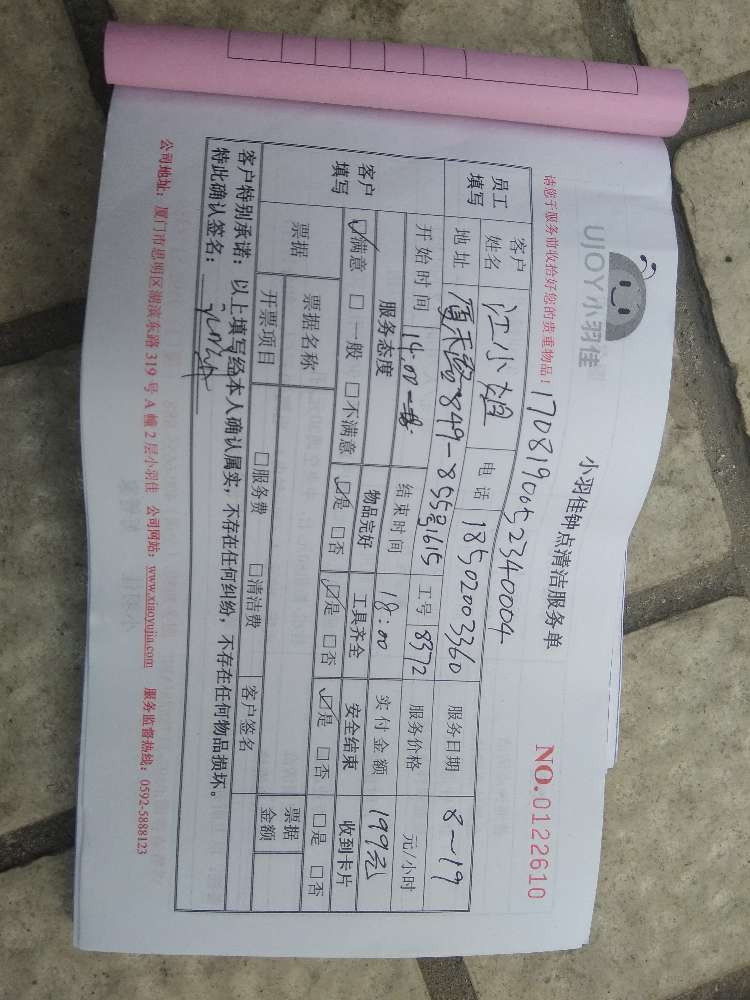 UJOY小羽佳
小羽佳钟点清洁服务单
NO.0122610
请您于服务前收拾好您的贵重物品！
17081900452340004
员工填写 客户姓名 江小姐 电话 18502003360 服务日期 8-19
地址 849-855号1615 工号 8372 服务价格 元/小时
开始时间 14:00 结束时间 18:00 实付金额 199元
客户填写 服务态度 物品完好 工具齐全 安全结束 收到卡片
☑满意 □一般 □不满意 ☑是 □否 ☑是 □否 ☑是 □否 □是 □否
票据 票据名称 票据金额
开票项目 □服务费 □清洁费 客户签名
客户特别承诺：以上填写经本人确认属实，不存在任何纠纷，不存在任何物品损坏。
特此确认签名：
公司地址：厦门市思明区湖滨东路319号A幢2层小羽佳 公司网站：www.xiaoyujia.com 服务监督热线：0592-5888123